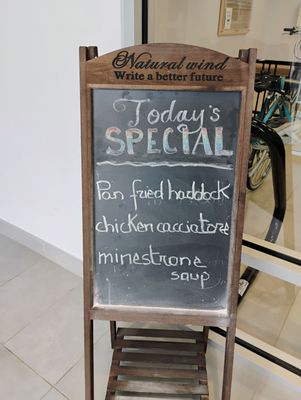 Natural wind
Write a better future
Today's
SPECIAL
Pan fried haddock
chicken cacciatore
minestrone
soup